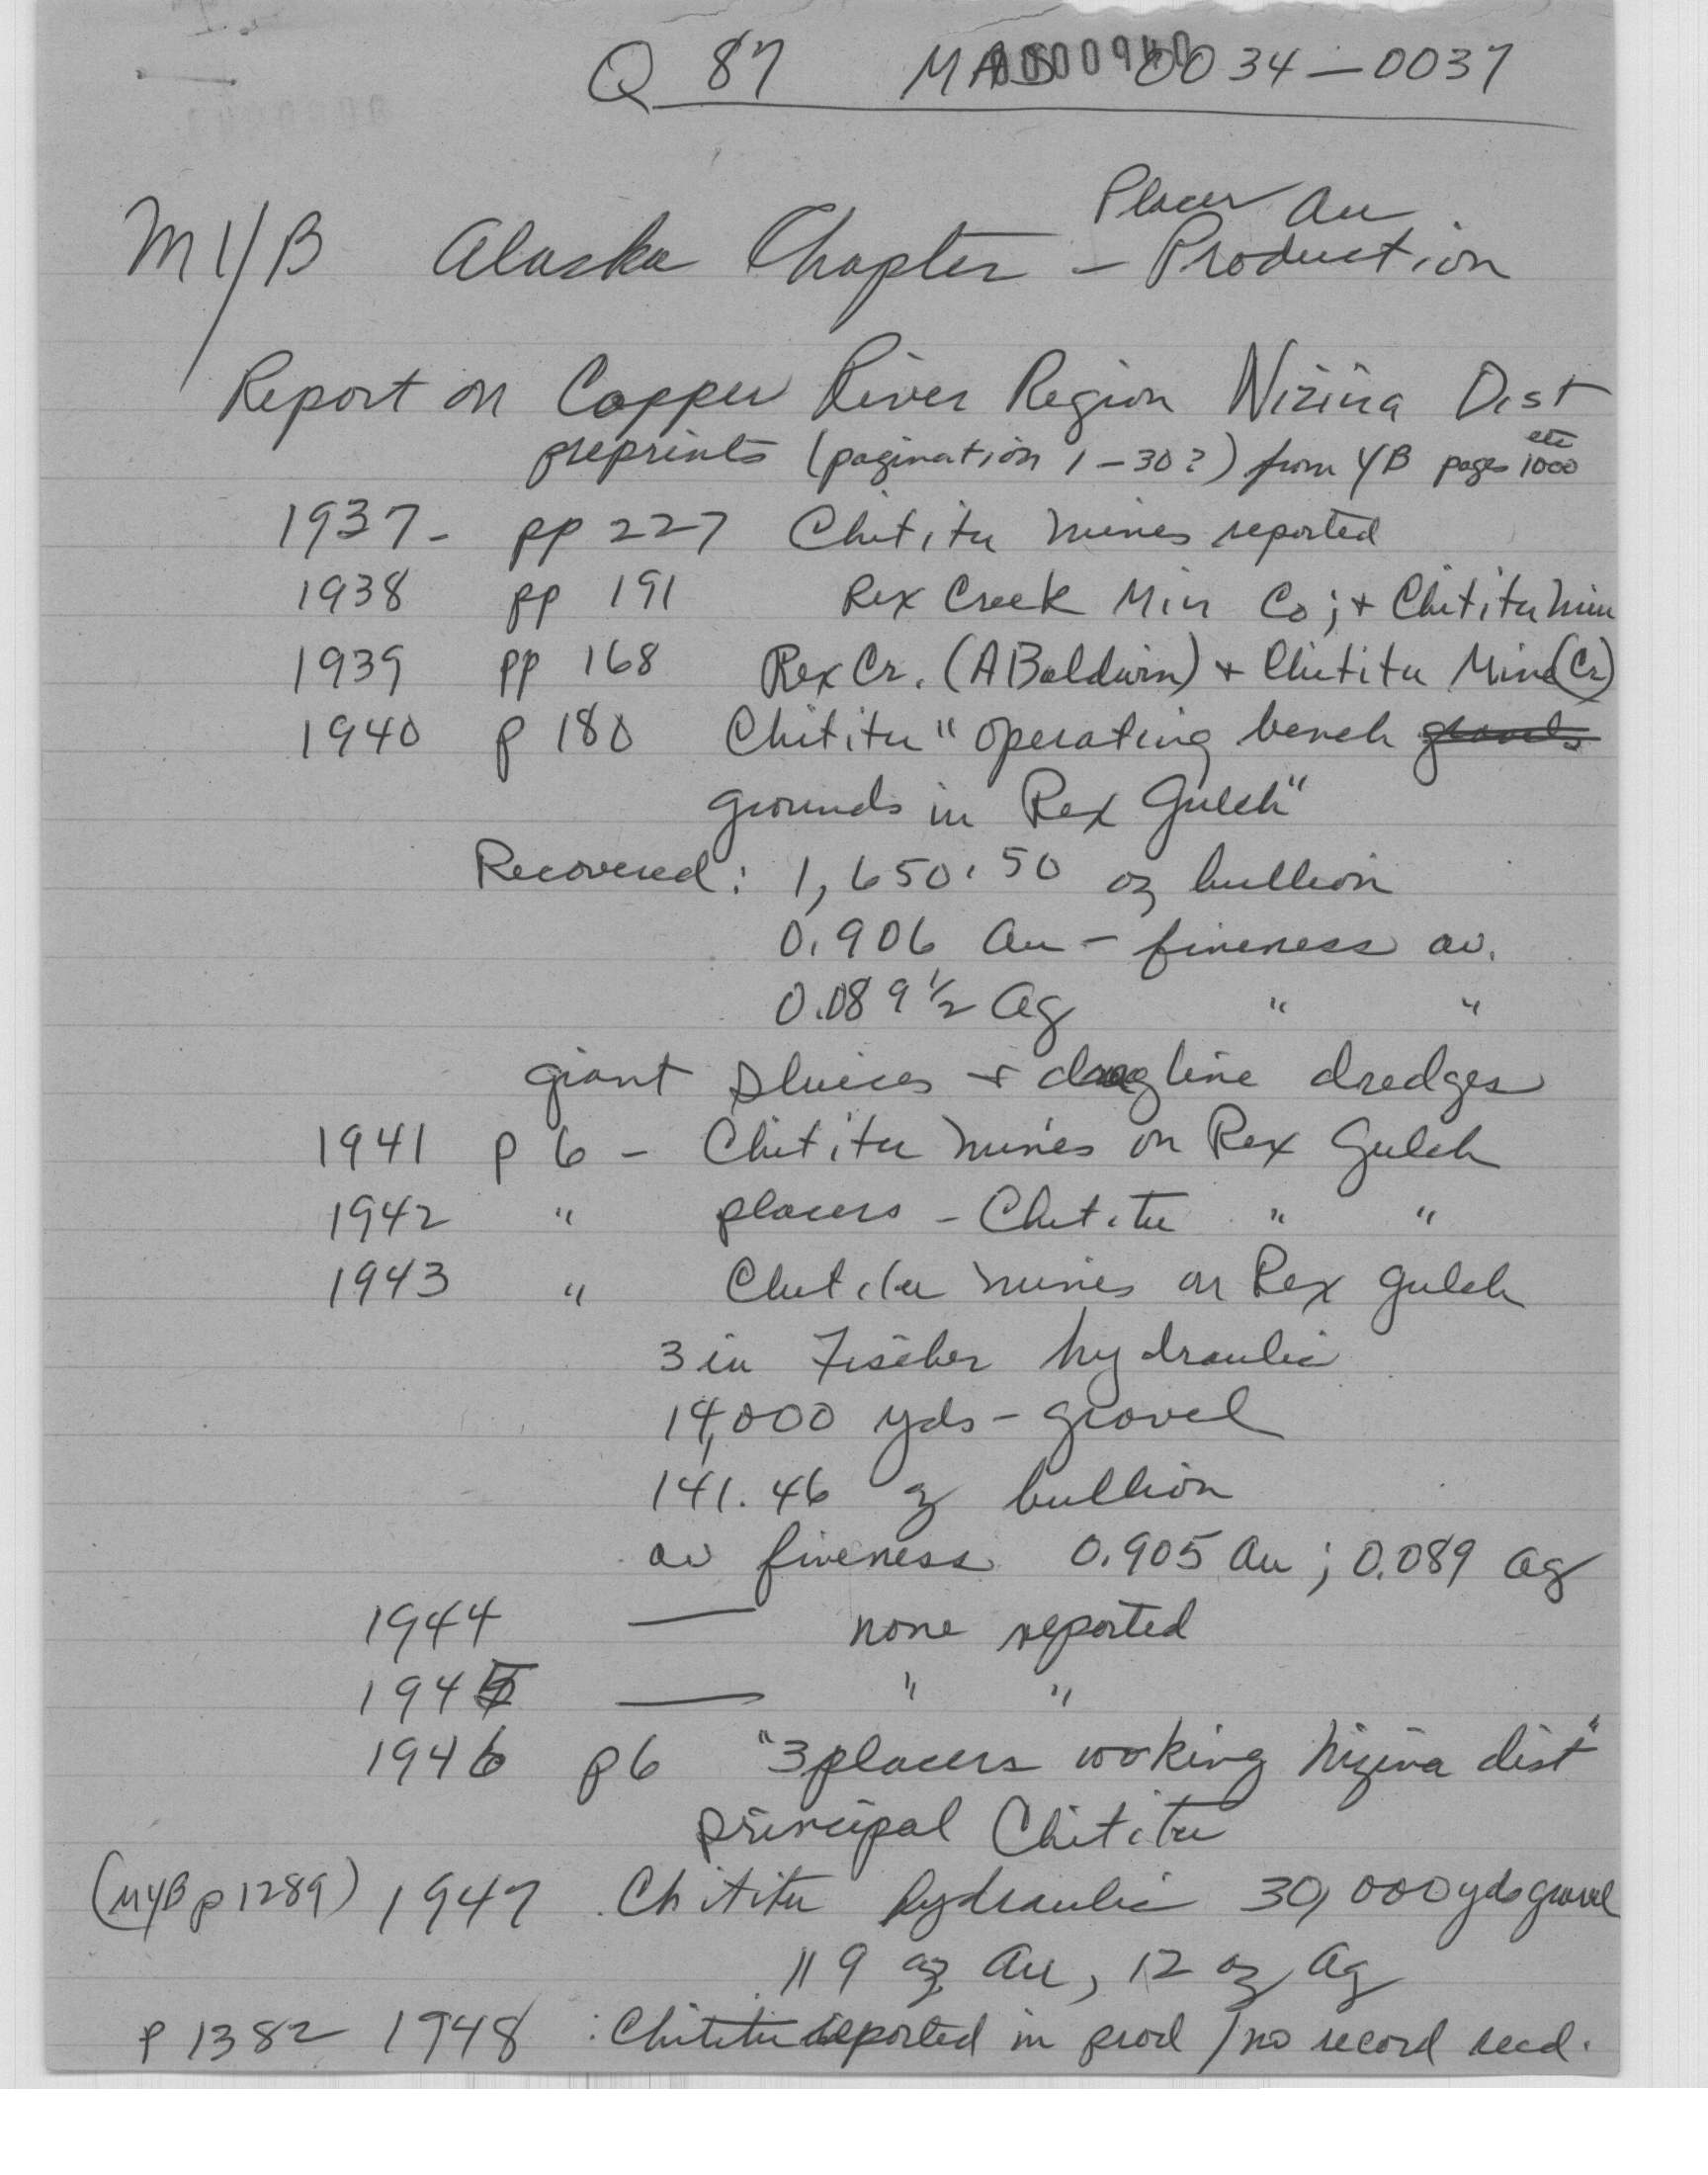 Q 87 MAS 0034-0037
0000940
Placer Au
MY/B Alaska Chapter - Production
Report on Copper River Region Nizina Dist
preprints (pagination 1-30?) from YB pages 1000 etc
1937- pp 227 Chititu Mines reported
1938 pp 191 Rex Creek Min Co; + Chititu Min
1939 pp 168 Rex Cr. (A Baldwin) + Chititu Mine (Cr)
1940 p 180 Chititu "operating bench gravels
grounds in Rex Gulch"
Recovered: 1,650.50 oz bullion
0.906 Au - fineness av.
0.089 1/2 Ag " "
giant sluices + dragline dredges
1941 p 6 - Chititu Mines on Rex Gulch
1942 " placers - Chititu " "
1943 " Chititu Mines on Rex Gulch
3 in Fischer hydraulic
14,000 yds - gravel
141.46 oz bullion
av fineness 0.905 Au; 0.089 Ag
1944 — none reported
1945 — " "
1946 p6 "3 placers working Nizina dist"
principal Chititu
(MYB p 1289) 1947 Chititu hydraulic 30,000 yds gravel
119 oz Au, 12 oz Ag
p 1382 1948 : Chititu reported in prod / no record recd.